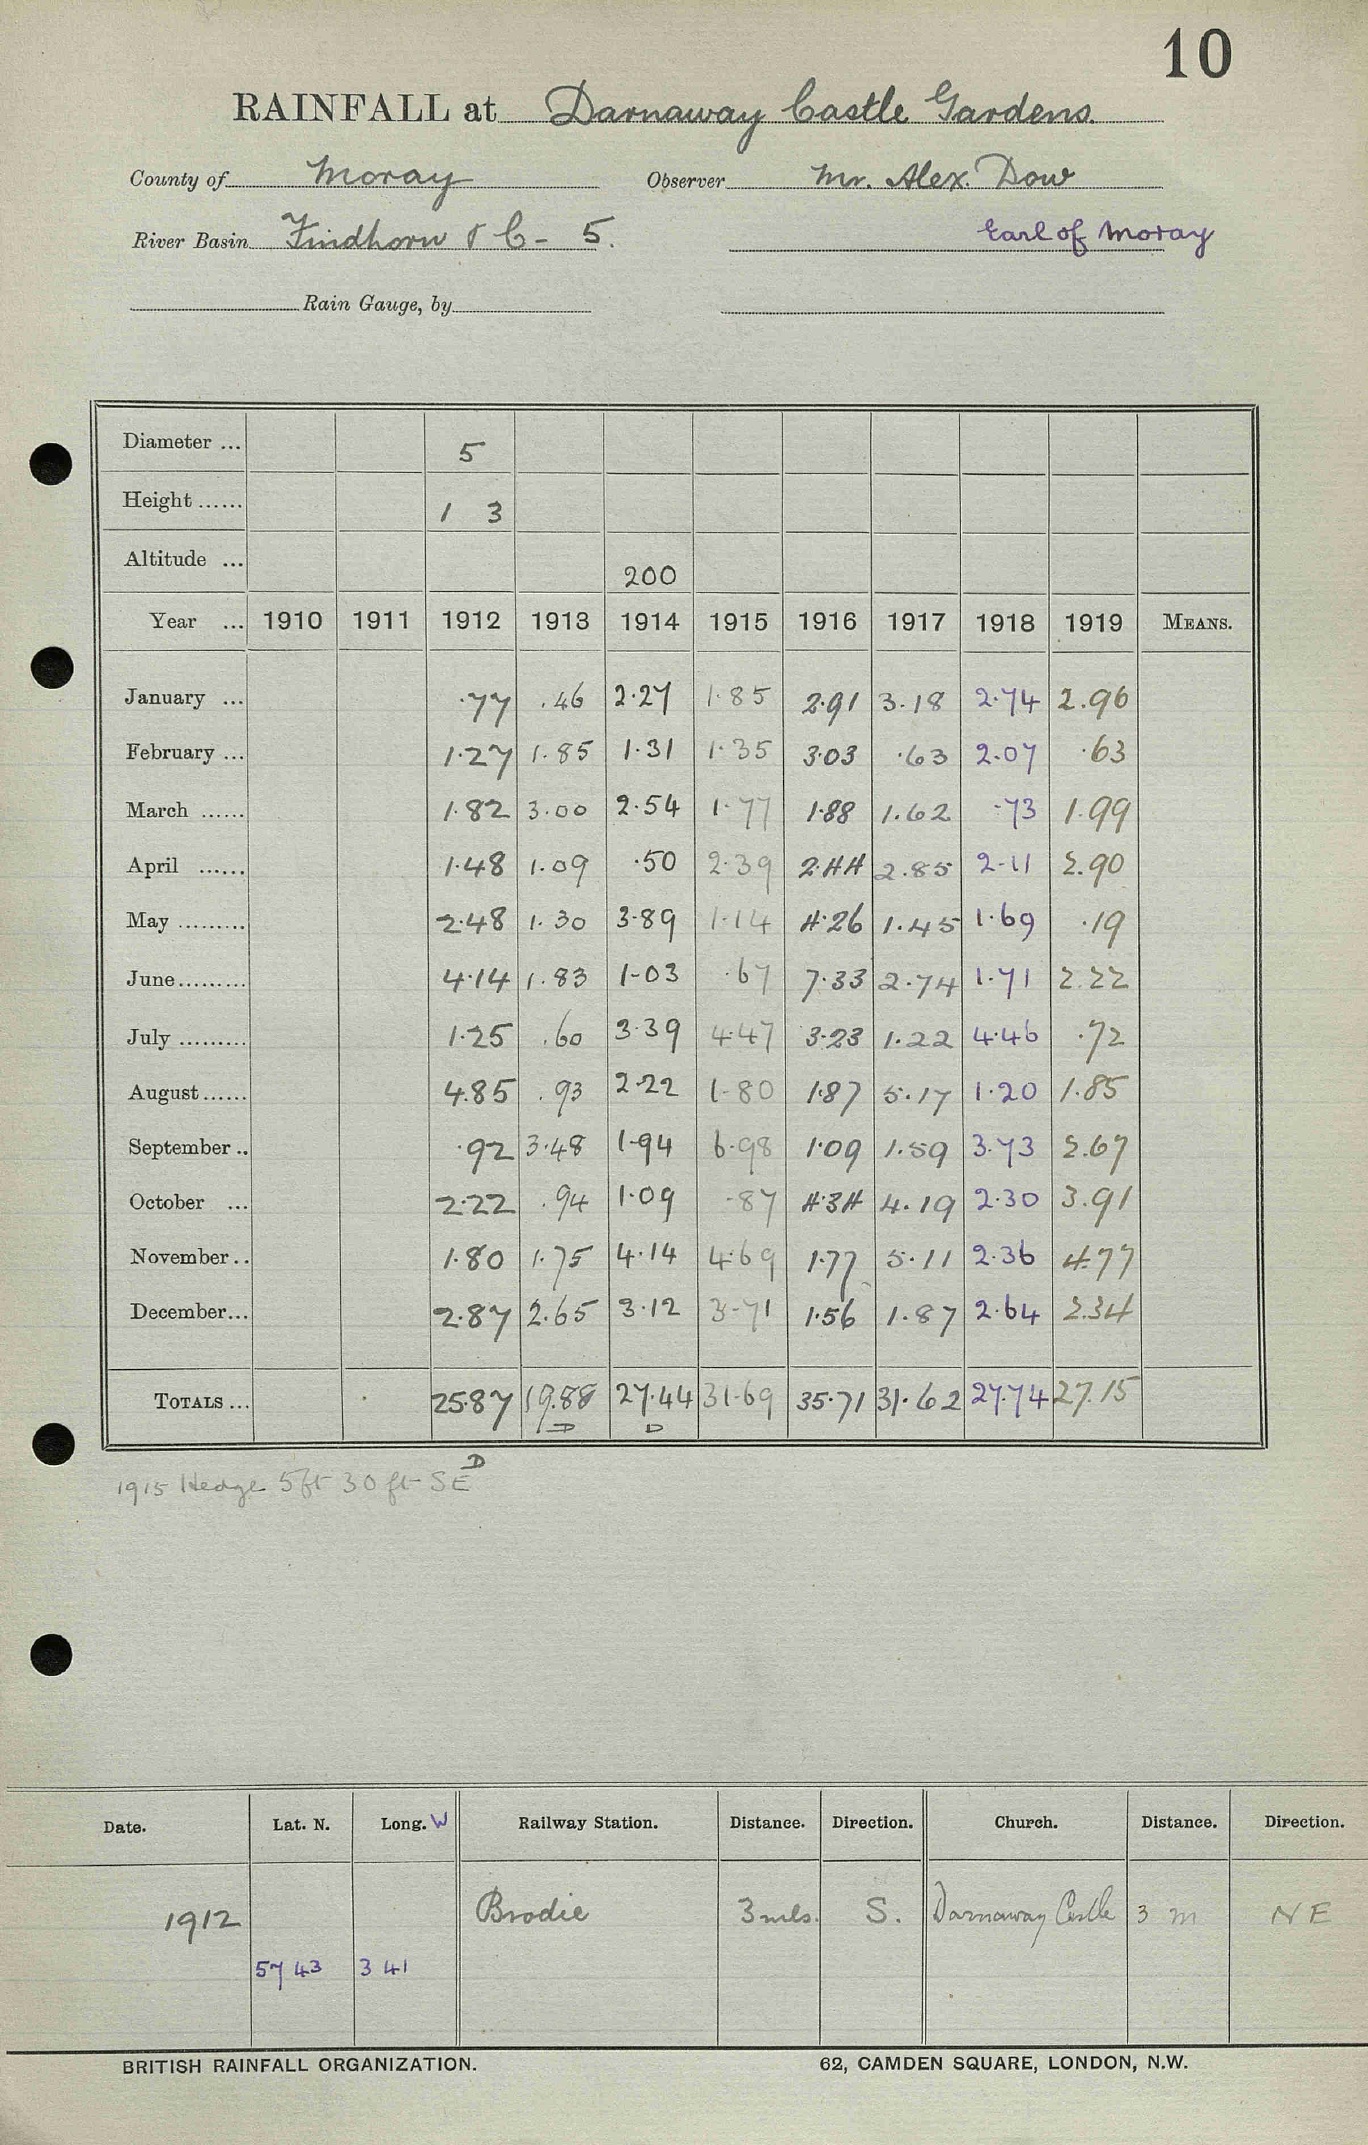 10
RAINFALL at Darnaway Castle Gardens.
County of Moray Observer Mr. Alex. Dow
River Basin Findhorn & C- 5. Earl of Moray
Rain Gauge, by
Diameter ... 5
Height ...... 1 3
Altitude ... 200
Year ... 1910 1911 1912 1913 1914 1915 1916 1917 1918 1919 MEANS.
January ... .77 .46 2.27 1.85 2.91 3.18 2.74 2.96
February ... 1.27 1.85 1.31 1.35 3.03 .63 2.07 .63
March ...... 1.82 3.00 2.54 1.77 1.88 1.62 .73 1.99
April ...... 1.48 1.09 .50 2.39 2.44 2.85 2.11 2.90
May ......... 2.48 1.30 3.89 1.14 4.26 1.45 1.69 .19
June......... 4.14 1.83 1.03 .67 7.33 2.74 1.71 2.22
July ......... 1.25 .60 3.39 4.47 3.23 1.22 4.46 .72
August...... 4.85 .93 2.22 1.80 1.87 5.17 1.20 1.85
September .. .92 3.48 1.94 6.98 1.09 1.59 3.73 2.67
October ... 2.22 .94 1.09 .87 4.34 4.19 2.30 3.91
November .. 1.80 1.75 4.14 4.69 1.77 5.11 2.36 4.77
December... 2.87 2.65 3.12 3.71 1.56 1.87 2.64 2.34
TOTALS ... 25.87 19.88 27.44 31.69 35.71 31.62 27.74 27.15
D D
D
1915 Hedge 5ft 30 ft SE
Date. Lat. N. Long. W Railway Station. Distance. Direction. Church. Distance. Direction.
1912 Brodie 3 mls. S. Darnaway Castle 3 m NE
57 43 3 41
BRITISH RAINFALL ORGANIZATION. 62, CAMDEN SQUARE, LONDON, N.W.